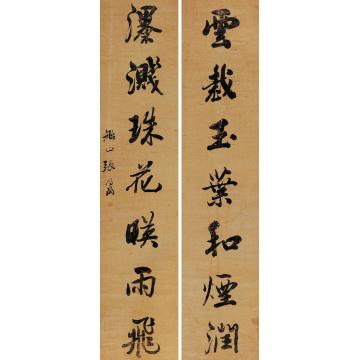 雲裁玉葉和煙潤
瀑濺珠花映雨飛
船山張問陶